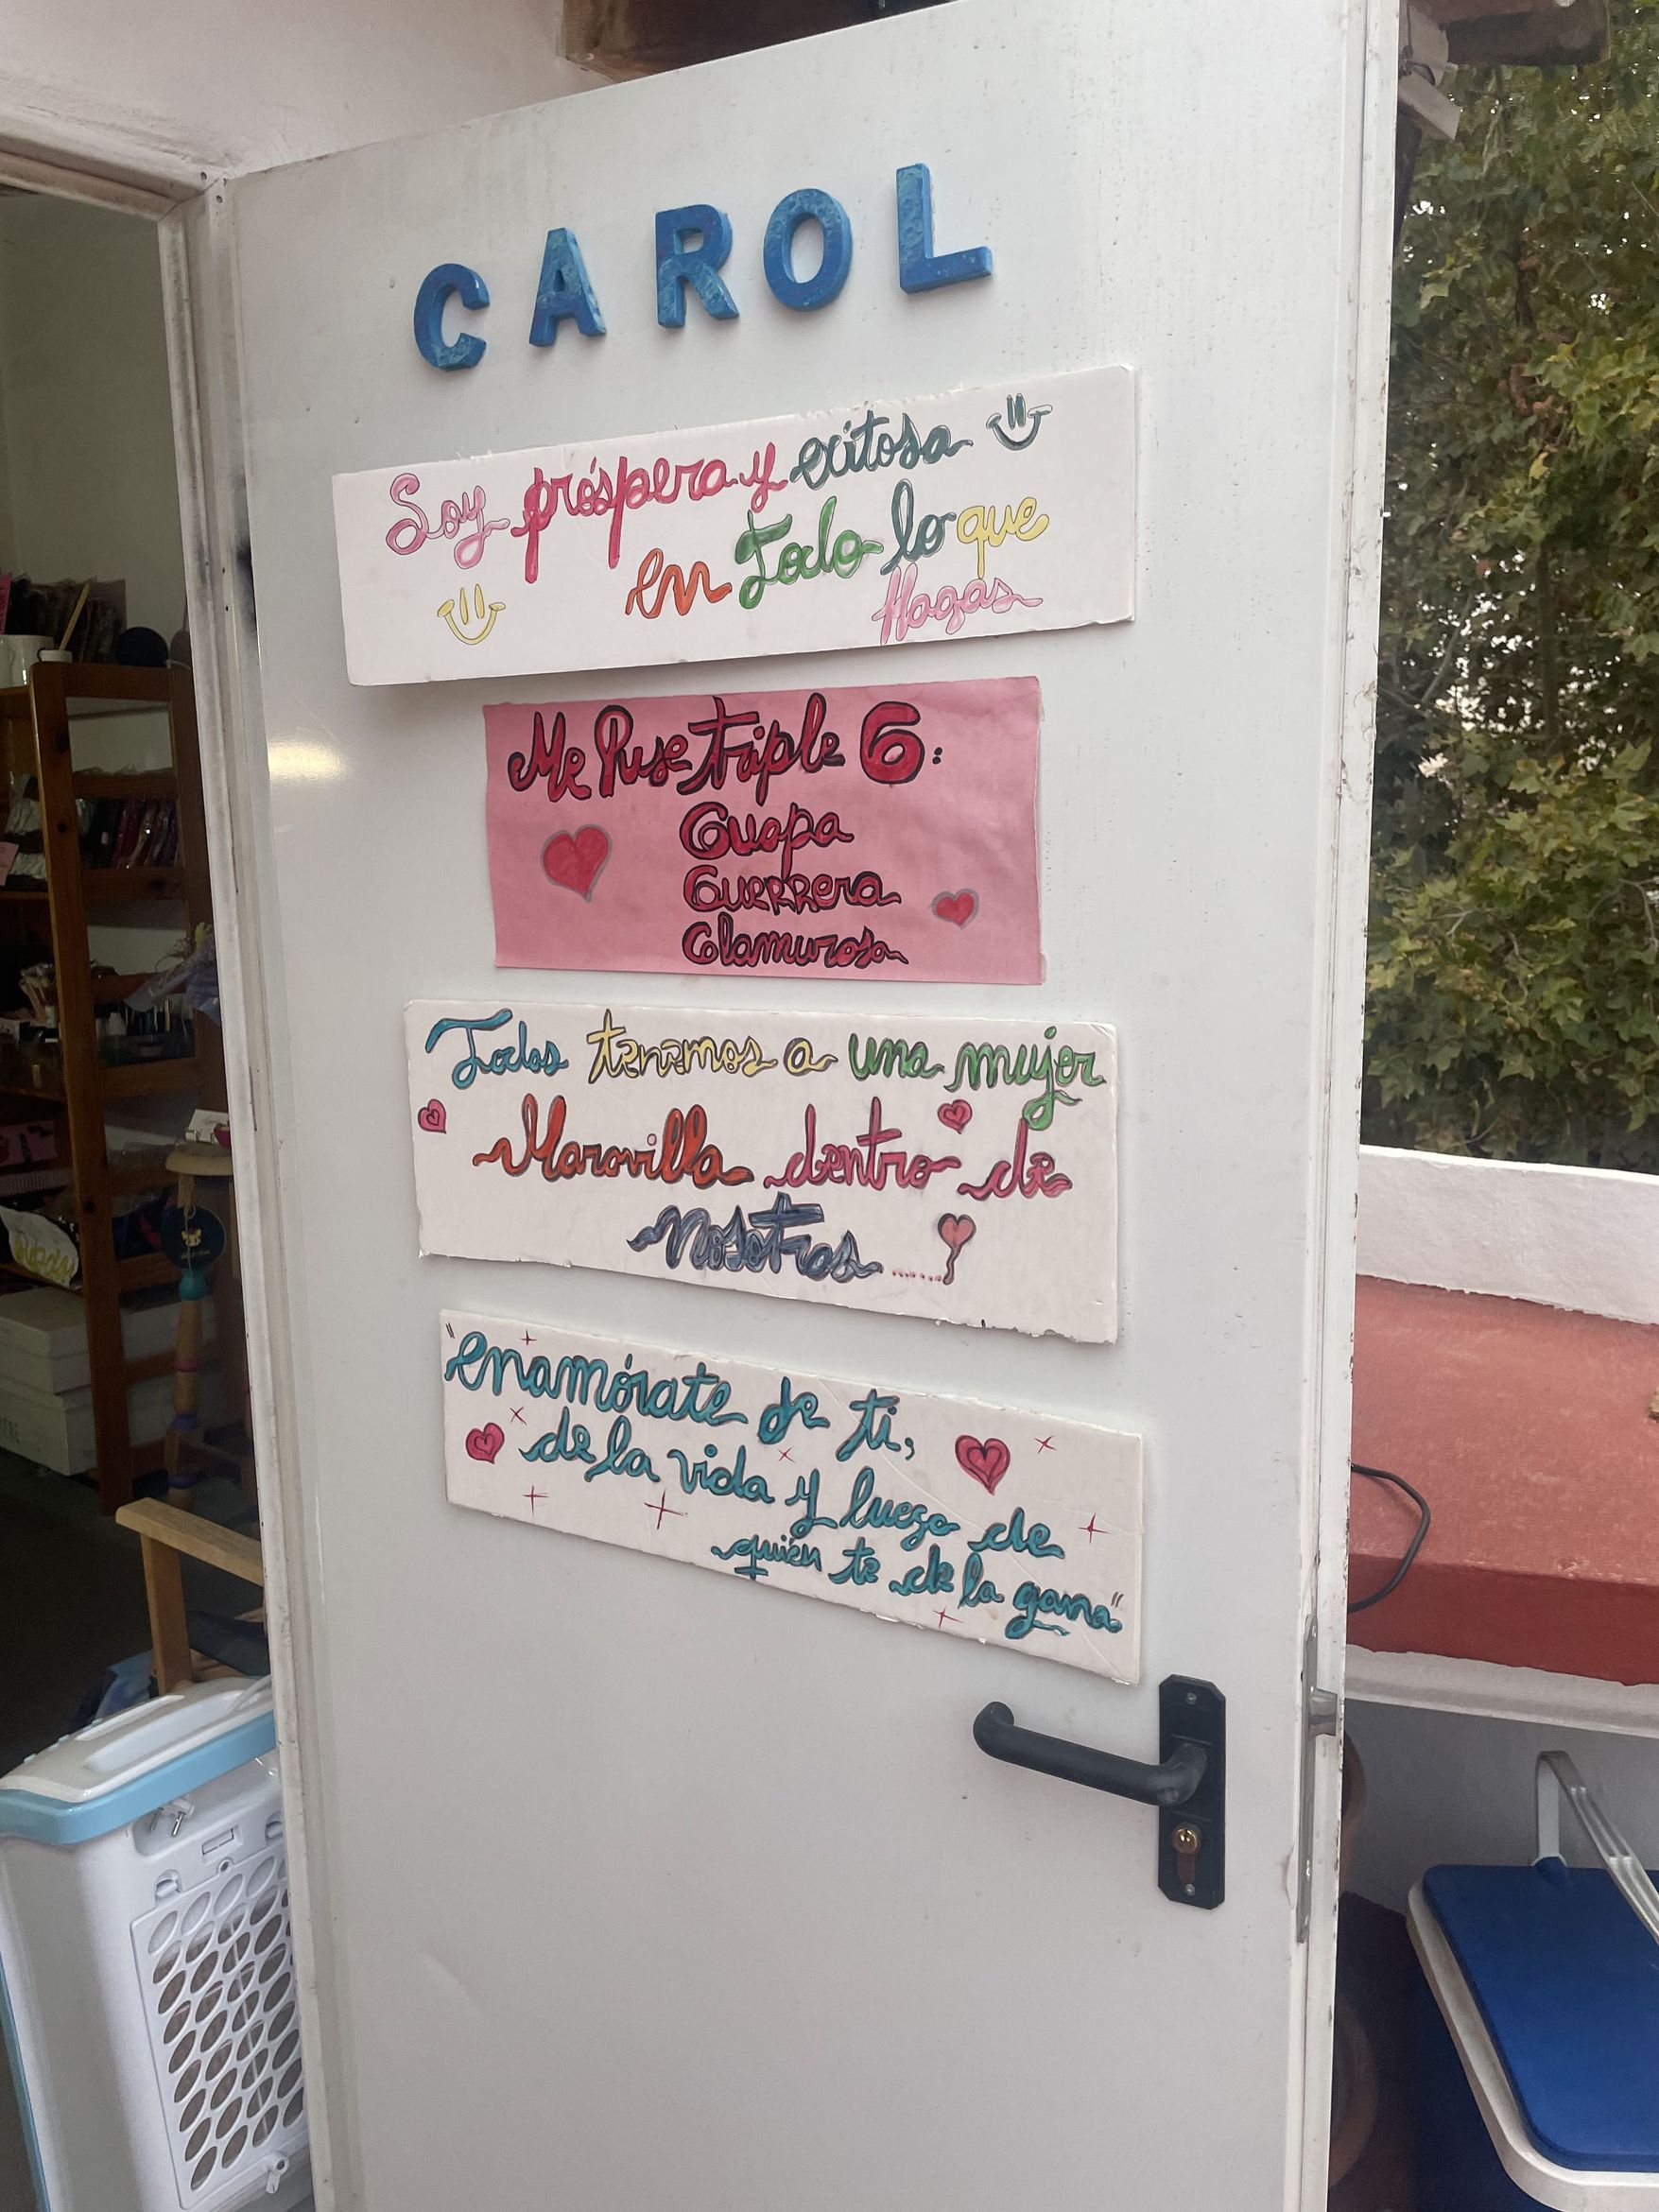 CAROL
Soy próspera y exitosa
en Todo lo que
Hagas
Me Puse Triple G:
Guapa
Guerrera
Glamurosa
Todas tenemos a una mujer
Maravilla dentro de
nosotras......
"enamórate de ti,
de la vida y luego de
quién te de la gana"